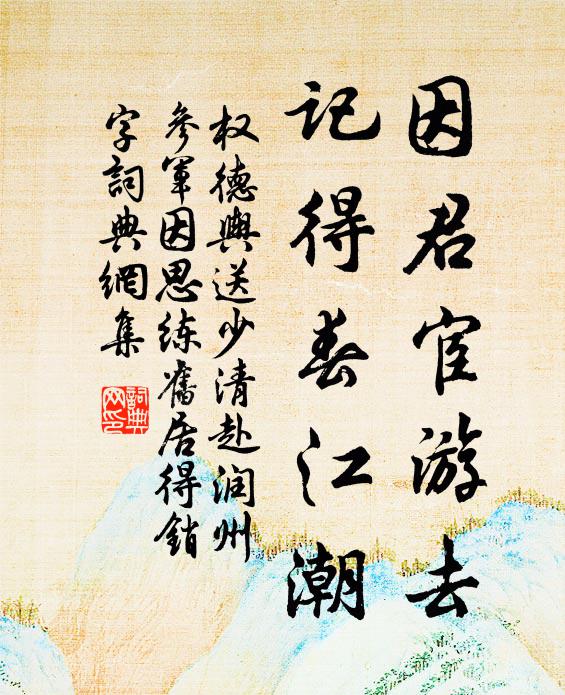 因君宦游去
记得春江潮
权德舆送少清赴润州
参军因思练旧居得销
字詞典網集
詞典
网印